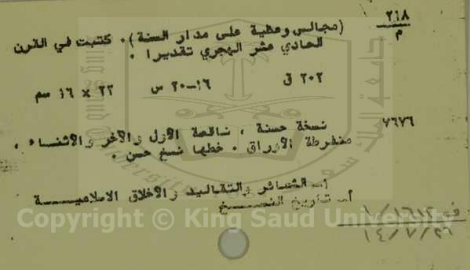 ٢١٨
م
(مجالس وعظية على مدار السنة). كتبت في القرن
الحادي عشر الهجري تقديرا.
٢٠٢ ق    ١٦-٢٠ س    ٢٢ × ١٦ سم
٧٦٧٦
نسخة حسنة، ناقصة الأول والآخر والأثناء،
منفرطة الأوراق. خطها نسخ حسن.
أ- الشعائر والتقاليد والأخلاق الاسلاميـــة
أ- تاريخ النســـخ
Copyright © King Saud University
١٤/٧/٢٦